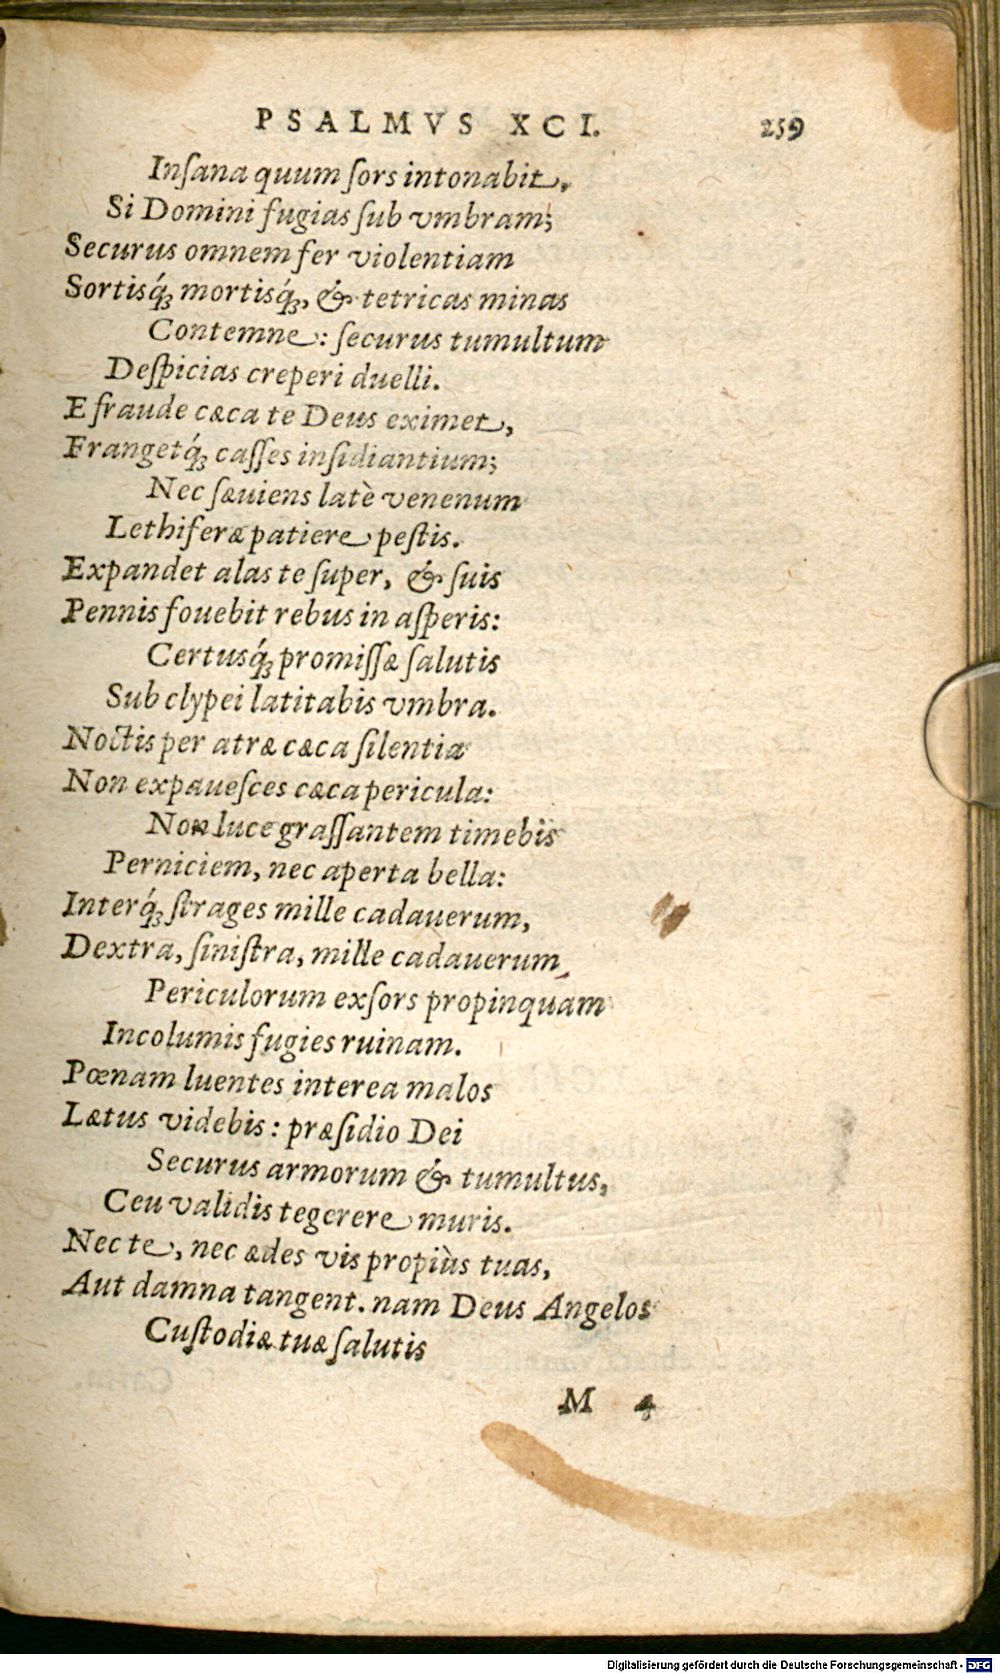 PSALMVS XCI. 259
Inſana quum ſors intonabit,
Si Domini fugias ſub vmbram;
Securus omnem fer violentiam
Sortisq́ꝫ mortisq́ꝫ, & tetricas minas
Contemne: ſecurus tumultum
Deſpicias creperi duelli.
E fraude cæca te Deus eximet,
Frangetq́ꝫ caſſes inſidiantium;
Nec ſæuiens latè venenum
Lethiferæ patiere peſtis.
Expandet alas te ſuper, & ſuis
Pennis fouebit rebus in aſperis:
Certusq́ꝫ promiſſæ ſalutis
Sub clypei latitabis vmbra.
Noctis per atræ cæca ſilentia
Non expaueſces cæca pericula:
Non luce graſſantem timebis
Perniciem, nec aperta bella:
Interq́ꝫ ſtrages mille cadauerum,
Dextra, ſiniſtra, mille cadauerum,
Periculorum exſors propinquam
Incolumis fugies ruinam.
Pœnam luentes interea malos
Lætus videbis: præſidio Dei
Securus armorum & tumultus,
Ceu validis tegerere muris.
Nec te, nec ædes vis propiùs tuas,
Aut damna tangent. nam Deus Angelos
Cuſtodiæ tuæ ſalutis
M 4
Digitalisierung gefördert durch die Deutsche Forschungsgemeinschaft - DFG